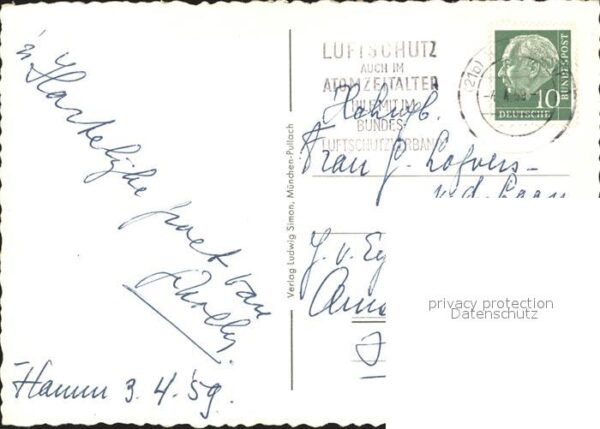 'n Hartelijke
groet van
Hamm 3.4.59.
Verlag Ludwig Simon, München-Pullach
LUFTSCHUTZ
AUCH IM
ATOMZEITALTER
HILF MIT IM
BUNDES-
LUFTSCHUTZVERBAND
(21b)
10
DEUTSCHE
BUNDESPOST
Frau G.
v.d. Laan
privacy protection
Datenschutz